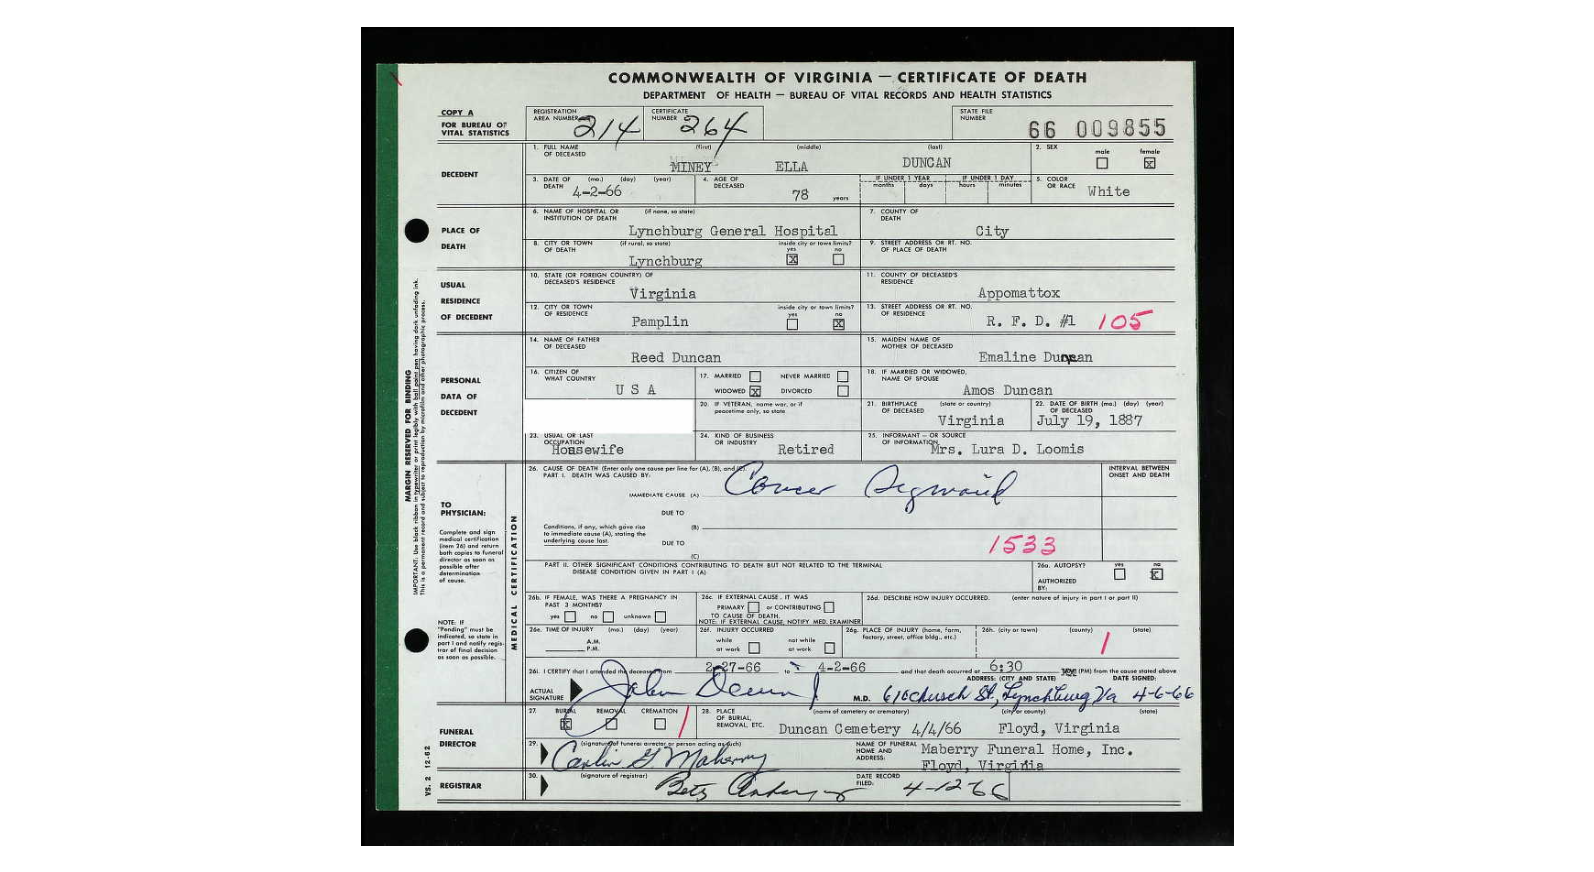 COMMONWEALTH OF VIRGINIA — CERTIFICATE OF DEATH
DEPARTMENT OF HEALTH — BUREAU OF VITAL RECORDS AND HEALTH STATISTICS
COPY A
FOR BUREAU OF VITAL STATISTICS
REGISTRATION AREA NUMBER 214
CERTIFICATE NUMBER 264
STATE FILE NUMBER 66 009855
DECEDENT
1. FULL NAME OF DECEASED (first) (middle) (last)
MINEY ELLA DUNCAN
2. SEX male female X
3. DATE OF DEATH (mo.) (day) (year) 4-2-66
4. AGE OF DECEASED 78 years
IF UNDER 1 YEAR months days
IF UNDER 1 DAY hours minutes
5. COLOR OR RACE White
PLACE OF DEATH
6. NAME OF HOSPITAL OR INSTITUTION OF DEATH (if none, so state)
Lynchburg General Hospital
7. COUNTY OF DEATH
City
8. CITY OR TOWN OF DEATH (if rural, so state) inside city or town limits? yes X no
Lynchburg
9. STREET ADDRESS OR RT. NO. OF PLACE OF DEATH
USUAL RESIDENCE OF DECEDENT
10. STATE (OR FOREIGN COUNTRY) OF DECEASED'S RESIDENCE
Virginia
11. COUNTY OF DECEASED'S RESIDENCE
Appomattox
12. CITY OR TOWN OF RESIDENCE inside city or town limits? yes no X
Pamplin
13. STREET ADDRESS OR RT. NO. OF RESIDENCE
R. F. D. #1 105
PERSONAL DATA OF DECEDENT
14. NAME OF FATHER OF DECEASED
Reed Duncan
15. MAIDEN NAME OF MOTHER OF DECEASED
Emaline Duncan
16. CITIZEN OF WHAT COUNTRY
U S A
17. MARRIED NEVER MARRIED
WIDOWED X DIVORCED
18. IF MARRIED OR WIDOWED, NAME OF SPOUSE
Amos Duncan
20. IF VETERAN, name war, or if peacetime only, so state
21. BIRTHPLACE OF DECEASED (state or country)
Virginia
22. DATE OF BIRTH (mo.) (day) (year) OF DECEASED
July 19, 1887
23. USUAL OR LAST OCCUPATION
Housewife
24. KIND OF BUSINESS OR INDUSTRY
Retired
25. INFORMANT — OR SOURCE OF INFORMATION
Mrs. Lura D. Loomis
MARGIN RESERVED FOR BINDING
IMPORTANT: Use black ribbon in typewriter or print legibly with ball point pen having dark unfading ink.
This is a permanent record and subject to reproduction by microfilm and other photographic process.
VS. 2 12-62
TO PHYSICIAN:
Complete and sign medical certification (item 26) and return both copies to funeral director as soon as possible after determination of cause.
NOTE: IF "Pending" must be indicated, so state in part I and notify registrar of final decision as soon as possible.
MEDICAL CERTIFICATION
26. CAUSE OF DEATH (Enter only one cause per line for (A), (B), and (C).
PART I. DEATH WAS CAUSED BY:
INTERVAL BETWEEN ONSET AND DEATH
IMMEDIATE CAUSE (A) Cancer Sigmoid
DUE TO
Conditions, if any, which gave rise to immediate cause (A), stating the underlying cause last.
(B)
DUE TO
(C)
1533
PART II. OTHER SIGNIFICANT CONDITIONS CONTRIBUTING TO DEATH BUT NOT RELATED TO THE TERMINAL DISEASE CONDITION GIVEN IN PART I (A)
26a. AUTOPSY? yes no X
AUTHORIZED BY:
26b. IF FEMALE, WAS THERE A PREGNANCY IN PAST 3 MONTHS?
yes no unknown
26c. IF EXTERNAL CAUSE, IT WAS
PRIMARY or CONTRIBUTING
TO CAUSE OF DEATH.
NOTE: IF EXTERNAL CAUSE, NOTIFY MED. EXAMINER
26d. DESCRIBE HOW INJURY OCCURRED. (enter nature of injury in part I or part II)
26e. TIME OF INJURY (mo.) (day) (year)
A.M.
P.M.
26f. INJURY OCCURRED
while at work not while at work
26g. PLACE OF INJURY (home, farm, factory, street, office bldg., etc.)
26h. (city or town) (county) (state)
26i. I CERTIFY that I attended the deceased from 2-27-66 to 4-2-66 and that death occurred at 6:30 (PM) from the cause stated above
ACTUAL SIGNATURE John
M.D.
ADDRESS: (CITY AND STATE) DATE SIGNED:
Church St, Lynchburg Va 4-6-66
FUNERAL DIRECTOR
27. BURIAL X REMOVAL CREMATION
28. PLACE OF BURIAL, REMOVAL, ETC. (name of cemetery or crematory) (city or county) (state)
Duncan Cemetery 4/4/66 Floyd, Virginia
29. (signature of funeral director or person acting as such)
Maberry
NAME OF FUNERAL HOME AND ADDRESS:
Maberry Funeral Home, Inc.
Floyd, Virginia
REGISTRAR
30. (signature of registrar)
Betty
DATE RECORD FILED: 4-12-66